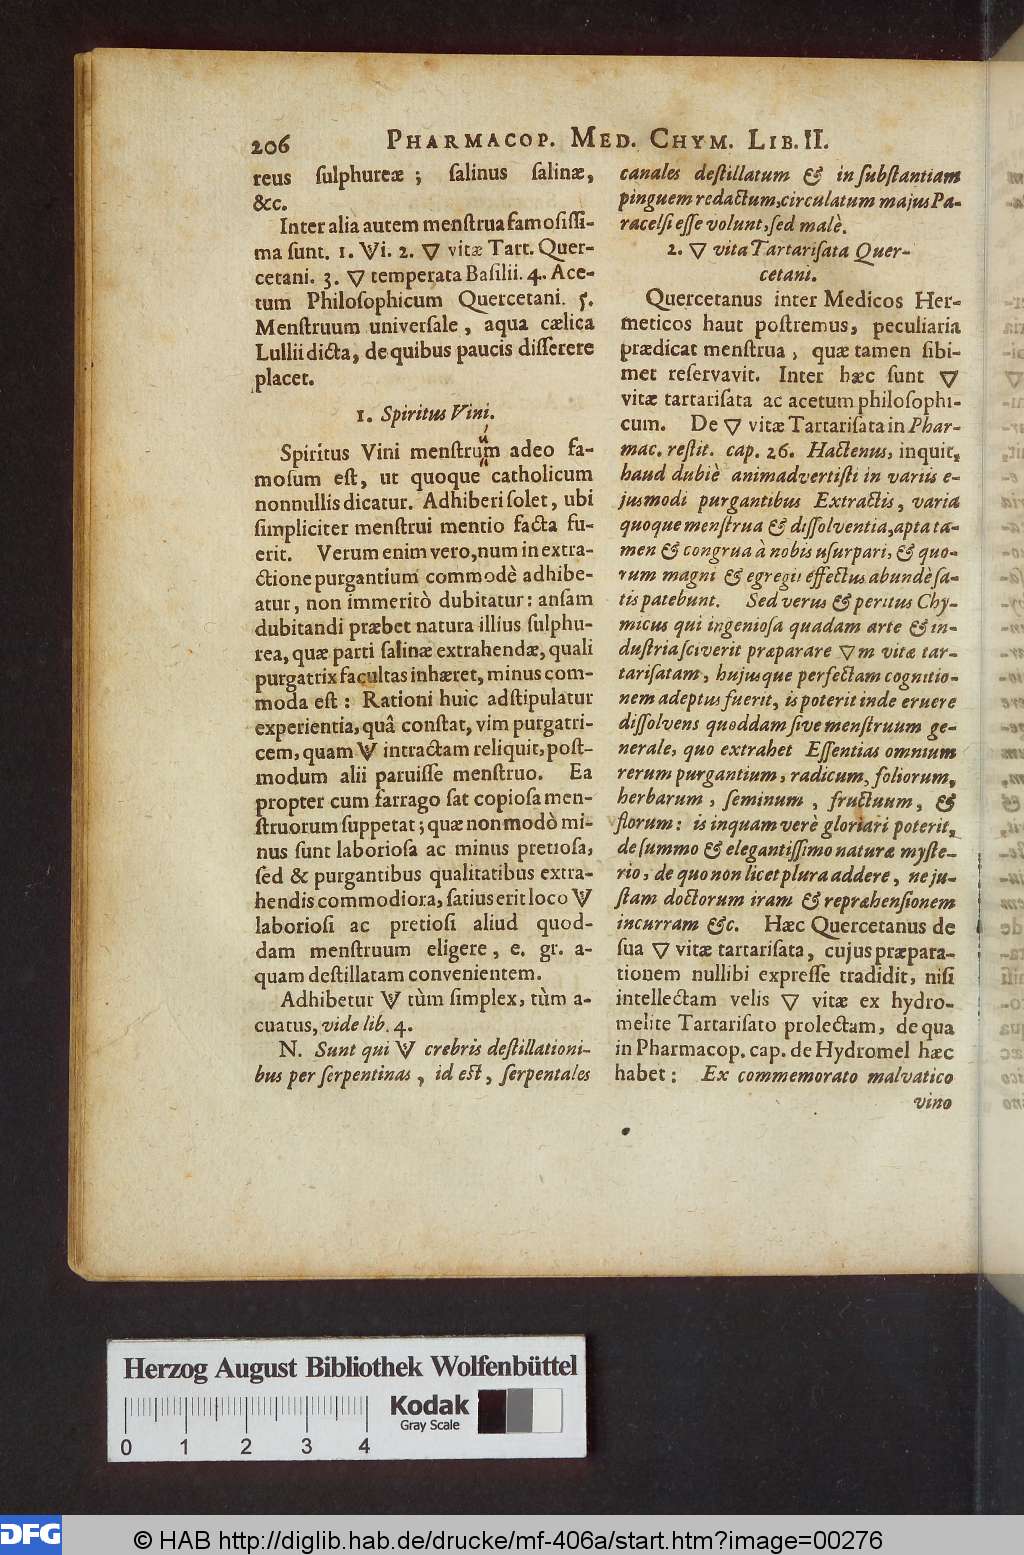 206 PHARMACOP. MED. CHYM. LIB. II.
reus ſulphureæ; ſalinus ſalinæ,
&c.
Inter alia autem menſtrua famoſiſſi-
ma ſunt. 1. Vi. 2. 🜄 vitæ Tart. Quer-
cetani. 3. 🜄 temperata Baſilii. 4. Ace-
tum Philoſophicum Quercetani. 5.
Menſtruum univerſale, aqua cælica
Lullii dicta, de quibus paucis diſſerere
placet.
1. Spiritus Vini.
Spiritus Vini menſtrum adeo fa-
u
moſum eſt, ut quoque catholicum
nonnullis dicatur. Adhiberi ſolet, ubi
ſimpliciter menſtrui mentio facta fu-
erit. Verum enim vero, num in extra-
ctione purgantium commodè adhibe-
atur, non immeritò dubitatur: anſam
dubitandi præbet natura illius ſulphu-
rea, quæ parti ſalinæ extrahendæ, quali
purgatrix facultas inhæret, minus com-
moda eſt: Rationi huic adſtipulatur
experientia, quâ conſtat, vim purgatri-
cem, quam V intractam reliquit, poſt-
modum alii paruiſſe menſtruo. Ea
propter cum farrago ſat copioſa men-
ſtruorum ſuppetat; quæ non modò mi-
nus ſunt laborioſa ac minus pretioſa,
ſed & purgantibus qualitatibus extra-
hendis commodiora, ſatius erit loco V
laborioſi ac pretioſi aliud quod-
dam menſtruum eligere, e. gr. a-
quam deſtillatam convenientem.
Adhibetur V tùm ſimplex, tùm a-
cuatus, vide lib. 4.
N. Sunt qui V crebris deſtillationi-
bus per ſerpentinas, id eſt, ſerpentales
canales deſtillatum & in ſubſtantiam
pinguem redactum, circulatum majus Pa-
racelſi eſſe volunt, ſed malè.
2. 🜄 vita Tartariſata Quer-
cetani.
Quercetanus inter Medicos Her-
meticos haut poſtremus, peculiaria
prædicat menſtrua, quæ tamen ſibi-
met reſervavit. Inter hæc ſunt 🜄
vitæ tartariſata ac acetum philoſophi-
cum. De 🜄 vitæ Tartariſata in Phar-
mac. reſtit. cap. 26. Hactenus, inquit,
haud dubiè animadvertiſti in variis e-
jusmodi purgantibus Extractis, varia
quoque menſtrua & diſſolventia, apta ta-
men & congrua à nobis uſurpari, & quo-
rum magni & egregii effectus abundè ſa-
tis patebunt. Sed verus & peritus Chy-
micus qui ingenioſa quadam arte & in-
duſtria ſciverit præparare 🜄m vitæ tar-
tariſatam, hujusque perfectam cognitio-
nem adeptus fuerit, is poterit inde eruere
diſſolvens quoddam ſive menſtruum ge-
nerale, quo extrahet Eſſentias omnium
rerum purgantium, radicum, foliorum,
herbarum, ſeminum, fructuum, &
florum: is inquam verè gloriari poterit,
de ſummo & elegantiſſimo naturæ myſte-
rio, de quo non licet plura addere, ne ju-
ſtam doctorum iram & reprehenſionem
incurram &c. Hæc Quercetanus de
ſua 🜄 vitæ tartariſata, cujus præpara-
tionem nullibi expreſſe tradidit, niſi
intellectam velis 🜄 vitæ ex hydro-
melite Tartariſato prolectam, de qua
in Pharmacop. cap. de Hydromel hæc
habet: Ex commemorato malvatico
vino
Herzog August Bibliothek Wolfenbüttel
Kodak
Gray Scale
0 1 2 3 4
DFG
© HAB http://diglib.hab.de/drucke/mf-406a/start.htm?image=00276